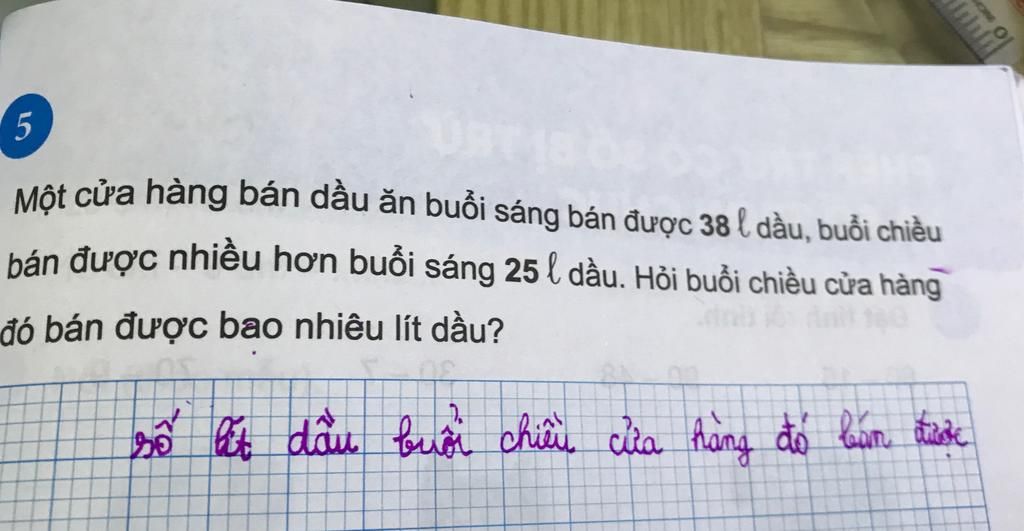 5
Một cửa hàng bán dầu ăn buổi sáng bán được 38 ℓ dầu, buổi chiều
bán được nhiều hơn buổi sáng 25 ℓ dầu. Hỏi buổi chiều cửa hàng
đó bán được bao nhiêu lít dầu?
số lít dầu buổi chiều cửa hàng đó bán được